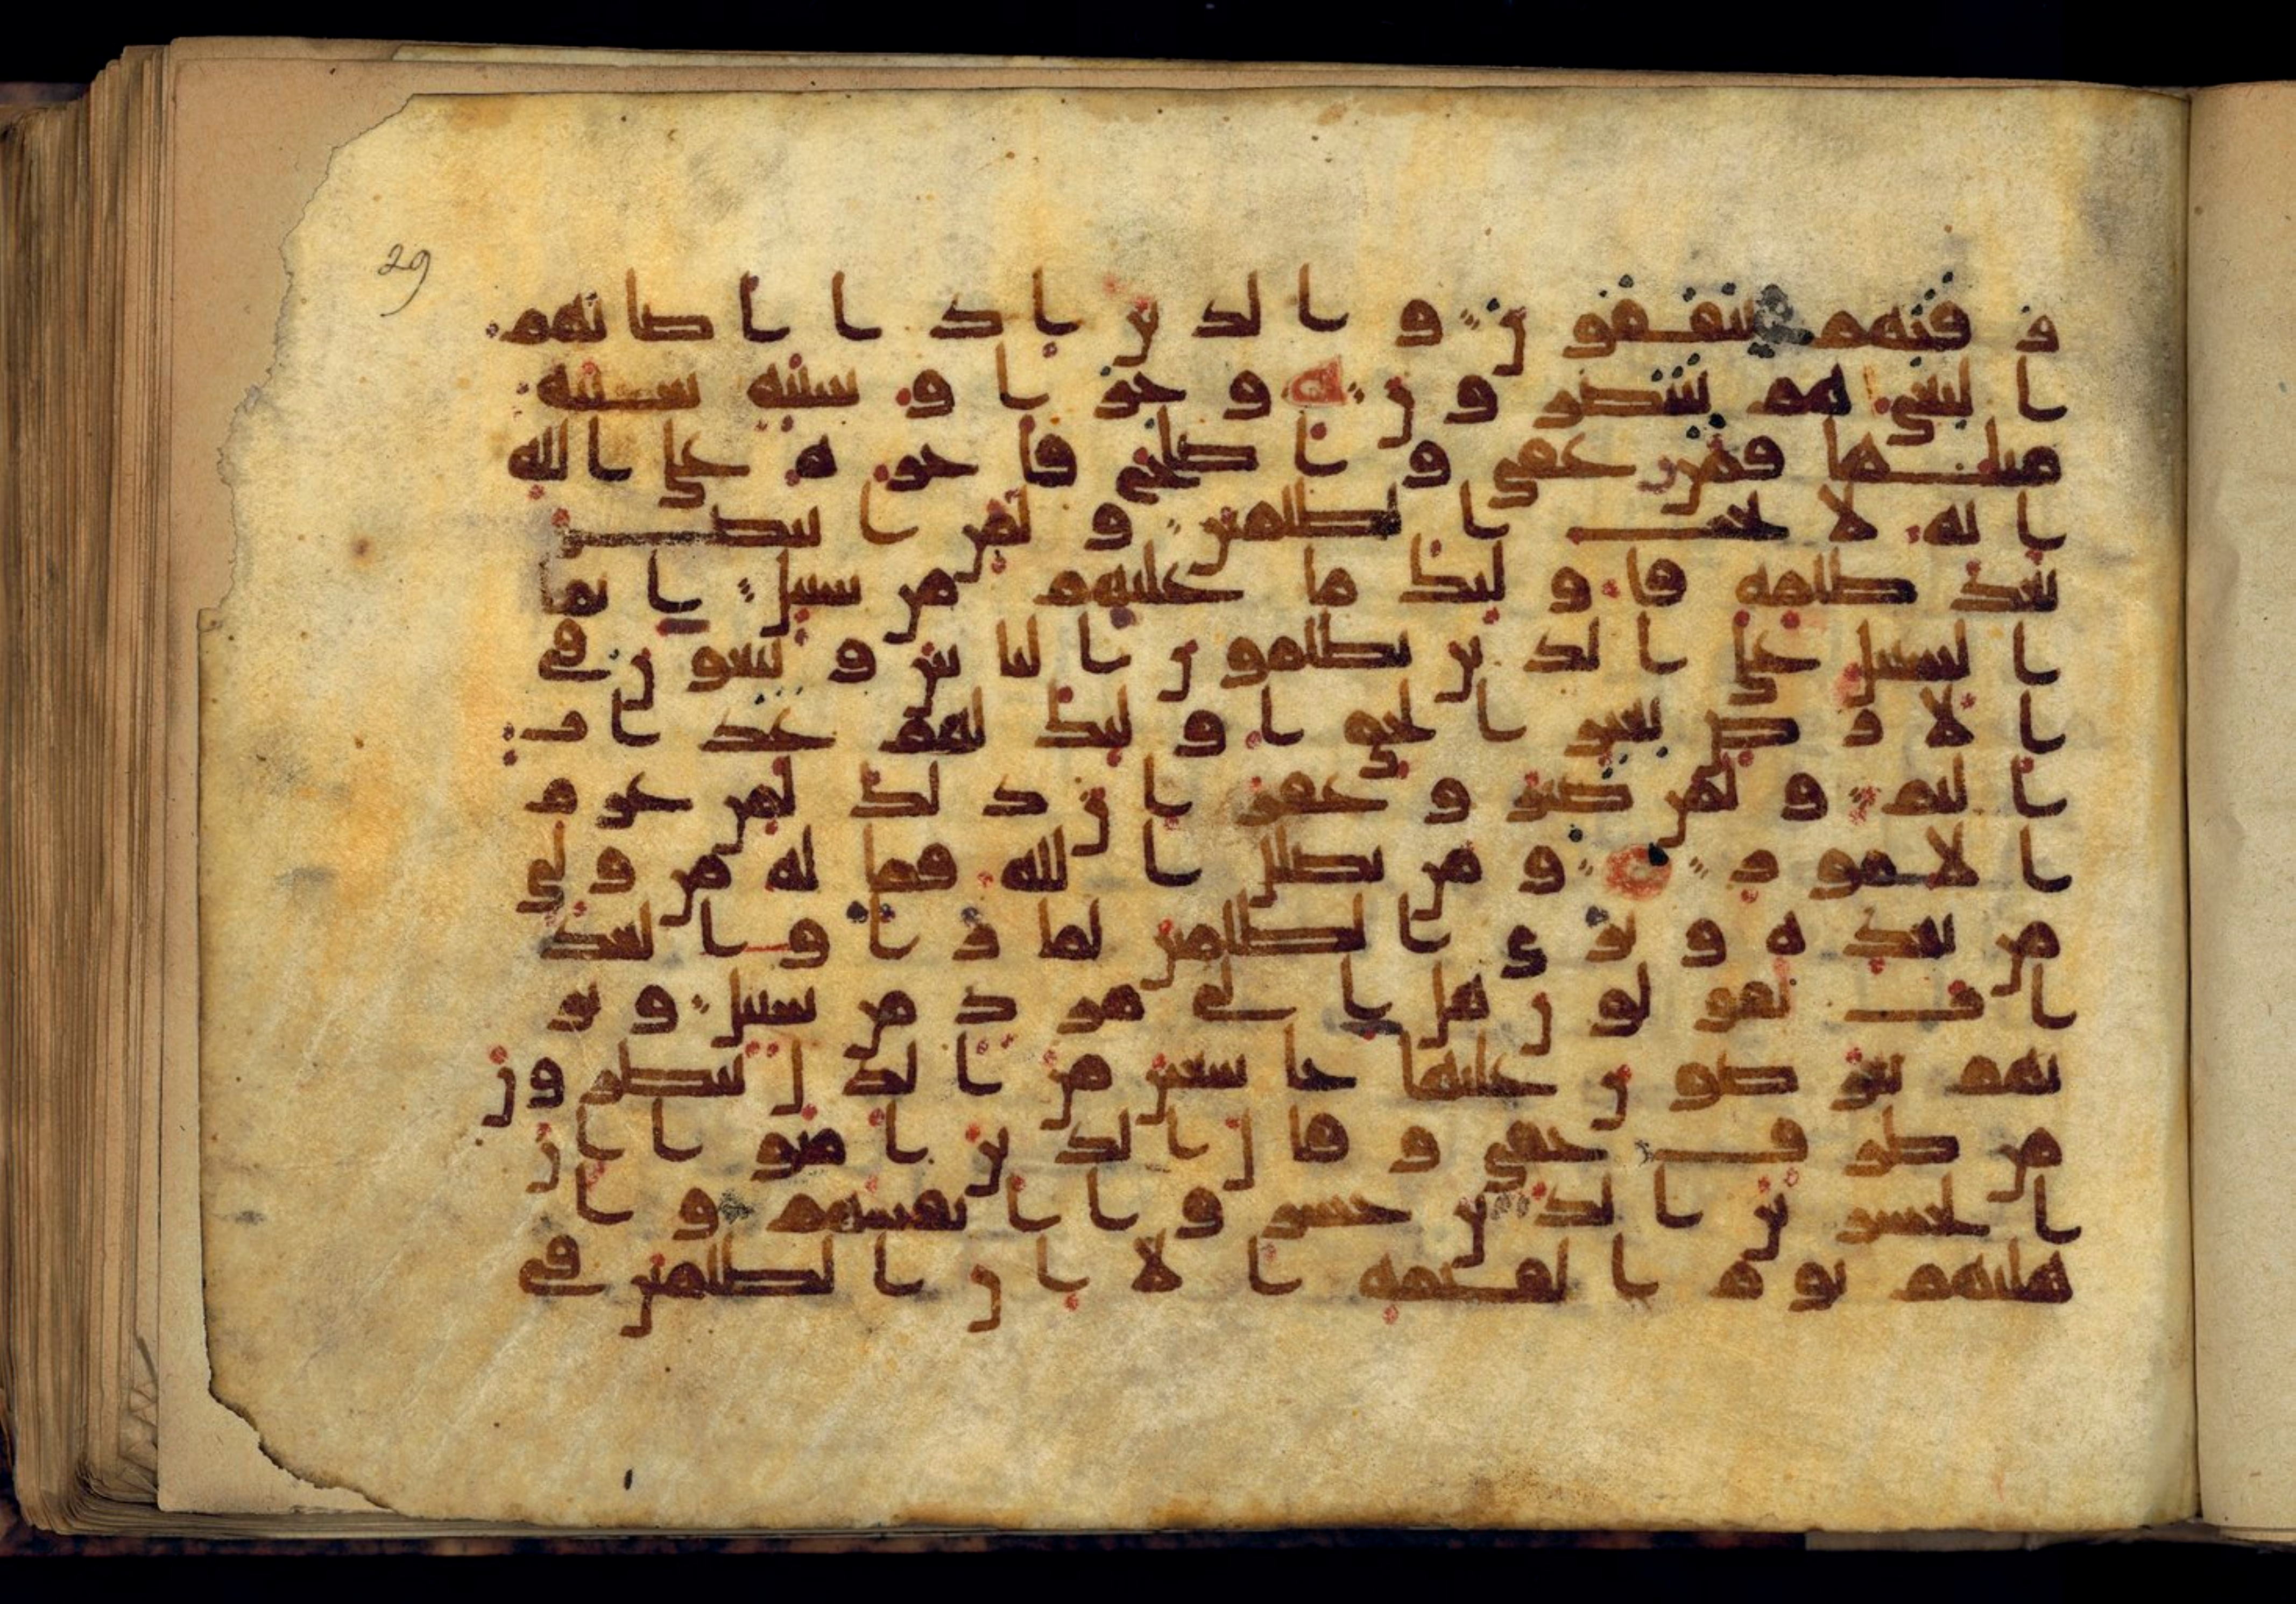 29
ز قنهم ينفقو ن و ا لذ ين ا ذ ا ا صا بهم
ا لبغى هم ينتصر و ن و جز ا و سيئة سيئة
مثلها فمن عفى و ا صلح فا جر ه على ا لله
ا نه لا يحب ا لظلمين و لمن ا نتصر
بعد ظلمه فا و لئك ما عليهم من سبيل ا نما
ا لسبيل على ا لذ ين يظلمو ن ا لنا س و يبغو ن في
ا لا ر ض بغير ا لحق ا و لئك لهم عذ ا ب
ا ليم و لمن صبر و غفر ا ن ذ لك لمن عز م
ا لا مو ر و من يضلل ا لله فما له من و لي
من بعد ه و تر ى ا لظلمين لما ر ا و ا لعذ
ا ب يقو لو ن هل ا لى مر د من سبيل و تر
يهم يعر ضو ن عليها خا شعين من ا لذ ل ينظر و ن
من طر ف خفي و قا ل ا لذ ين ا منو ا ا ن
ا لخسر ين ا لذ ين خسر و ا ا نفسهم و ا
هليهم يو م ا لقيمة ا لا ا ن ا لظلمين في